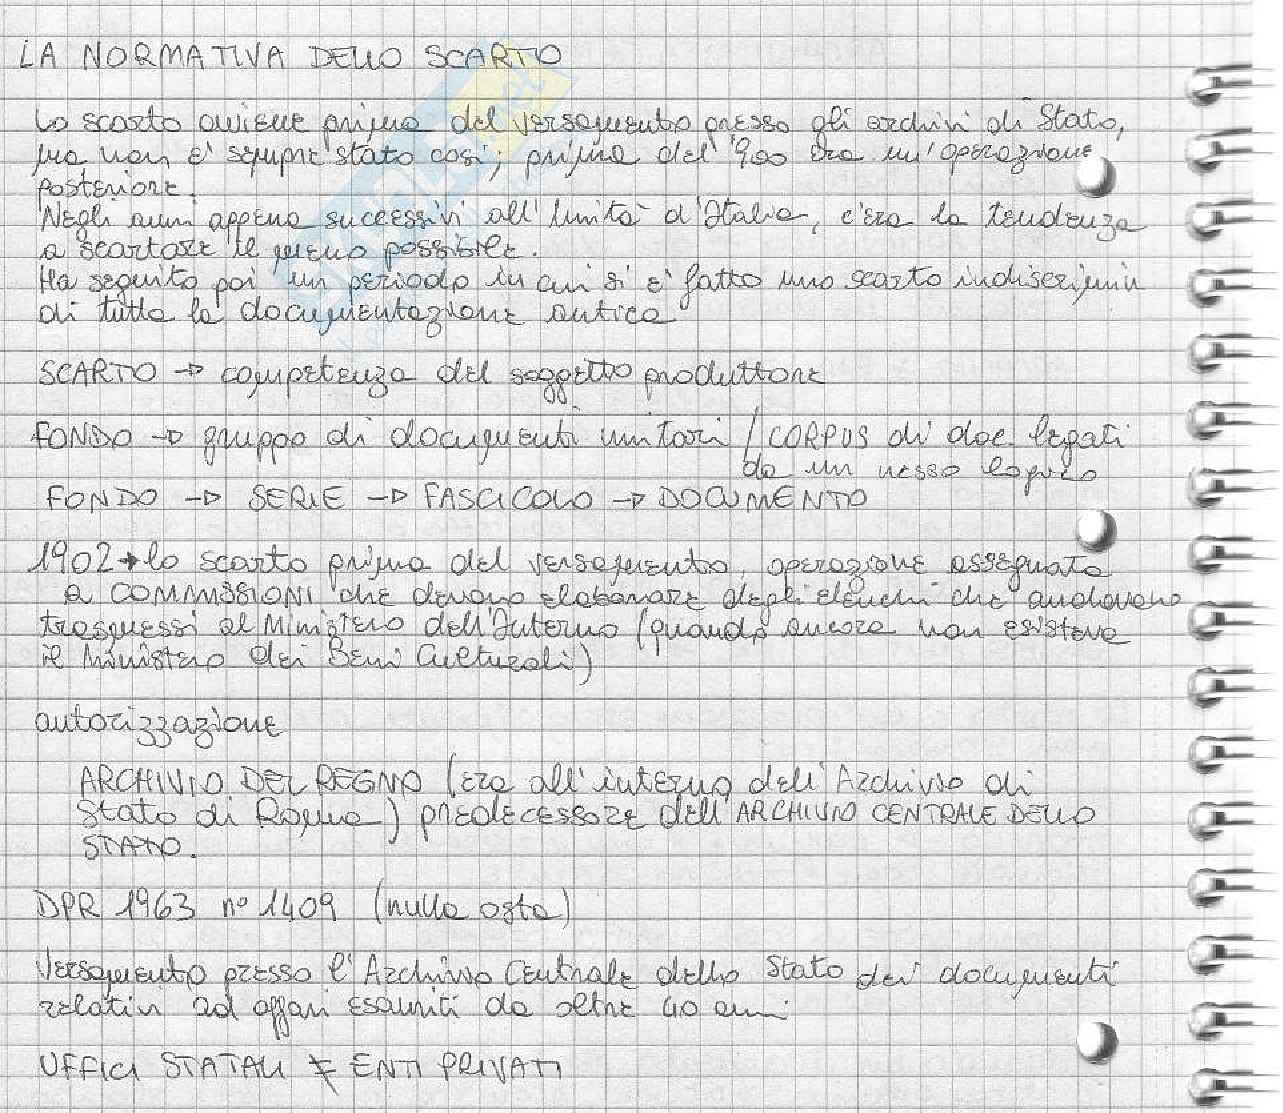 LA NORMATIVA DELLO SCARTO
Lo scarto avviene prima del versamento presso gli archivi di Stato,
ma non è sempre stato così; prima del '900 era un'operazione
posteriore.
Negli anni appena successivi all'Unità d'Italia, c'era la tendenza
a scartare il meno possibile.
Ha seguito poi un periodo in cui si è fatto uno scarto indiscrimin
di tutta la documentazione antica
SCARTO → competenza del soggetto produttore
FONDO → gruppo di documenti unitari / CORPUS di doc. legati
da un nesso logico
FONDO → SERIE → FASCICOLO → DOCUMENTO
1902 → lo scarto prima del versamento, operazione assegnata
a COMMISSIONI che devono elaborare degli elenchi che andavano
trasmessi al Ministero dell'Interno (quando ancora non esisteva
il Ministero dei Beni Culturali)
autorizzazione
ARCHIVIO DEL REGNO (era all'interno dell'Archivio di
Stato di Roma) predecessore dell'ARCHIVIO CENTRALE DELLO
STATO.
DPR 1963 n° 1409 (nulla osta)
Versamento presso l'Archivio Centrale dello Stato dei documenti
relativi ad affari esauriti da oltre 40 anni
UFFICI STATALI ≠ ENTI PRIVATI